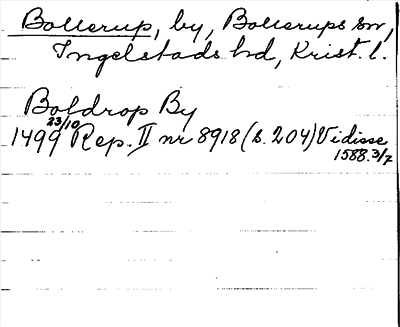 Bollerup, by, Bollerups sn,
Ingelstads hd, Krist. l.
Boldrop By
1499 23/10 Rep. II nr 8918 (s. 204) Vidisse
1588. 3/7